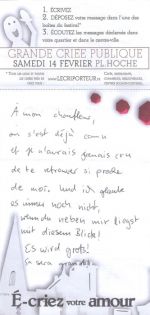 1. ÉCRIVEZ
2. DÉPOSEZ votre message dans l'une des
boîtes du festival*
3. ÉCOUTEZ les messages déclamés dans
votre quartier et dans le centre-ville
GRANDE CRIÉE PUBLIQUE
SAMEDI 14 FÉVRIER PL.HOCHE
WWW.LECRIPORTEUR.FR
À mon chauffeur,
on s'est déjà connu
et je n'aurais jamais cru
de te retrouver si proche
de moi. Und ich glaube
es immer noch nicht,
wenn du neben mir liegst
mit diesem Blick!
Es wird groß!
Ça sera grand!
É-criez votre amour